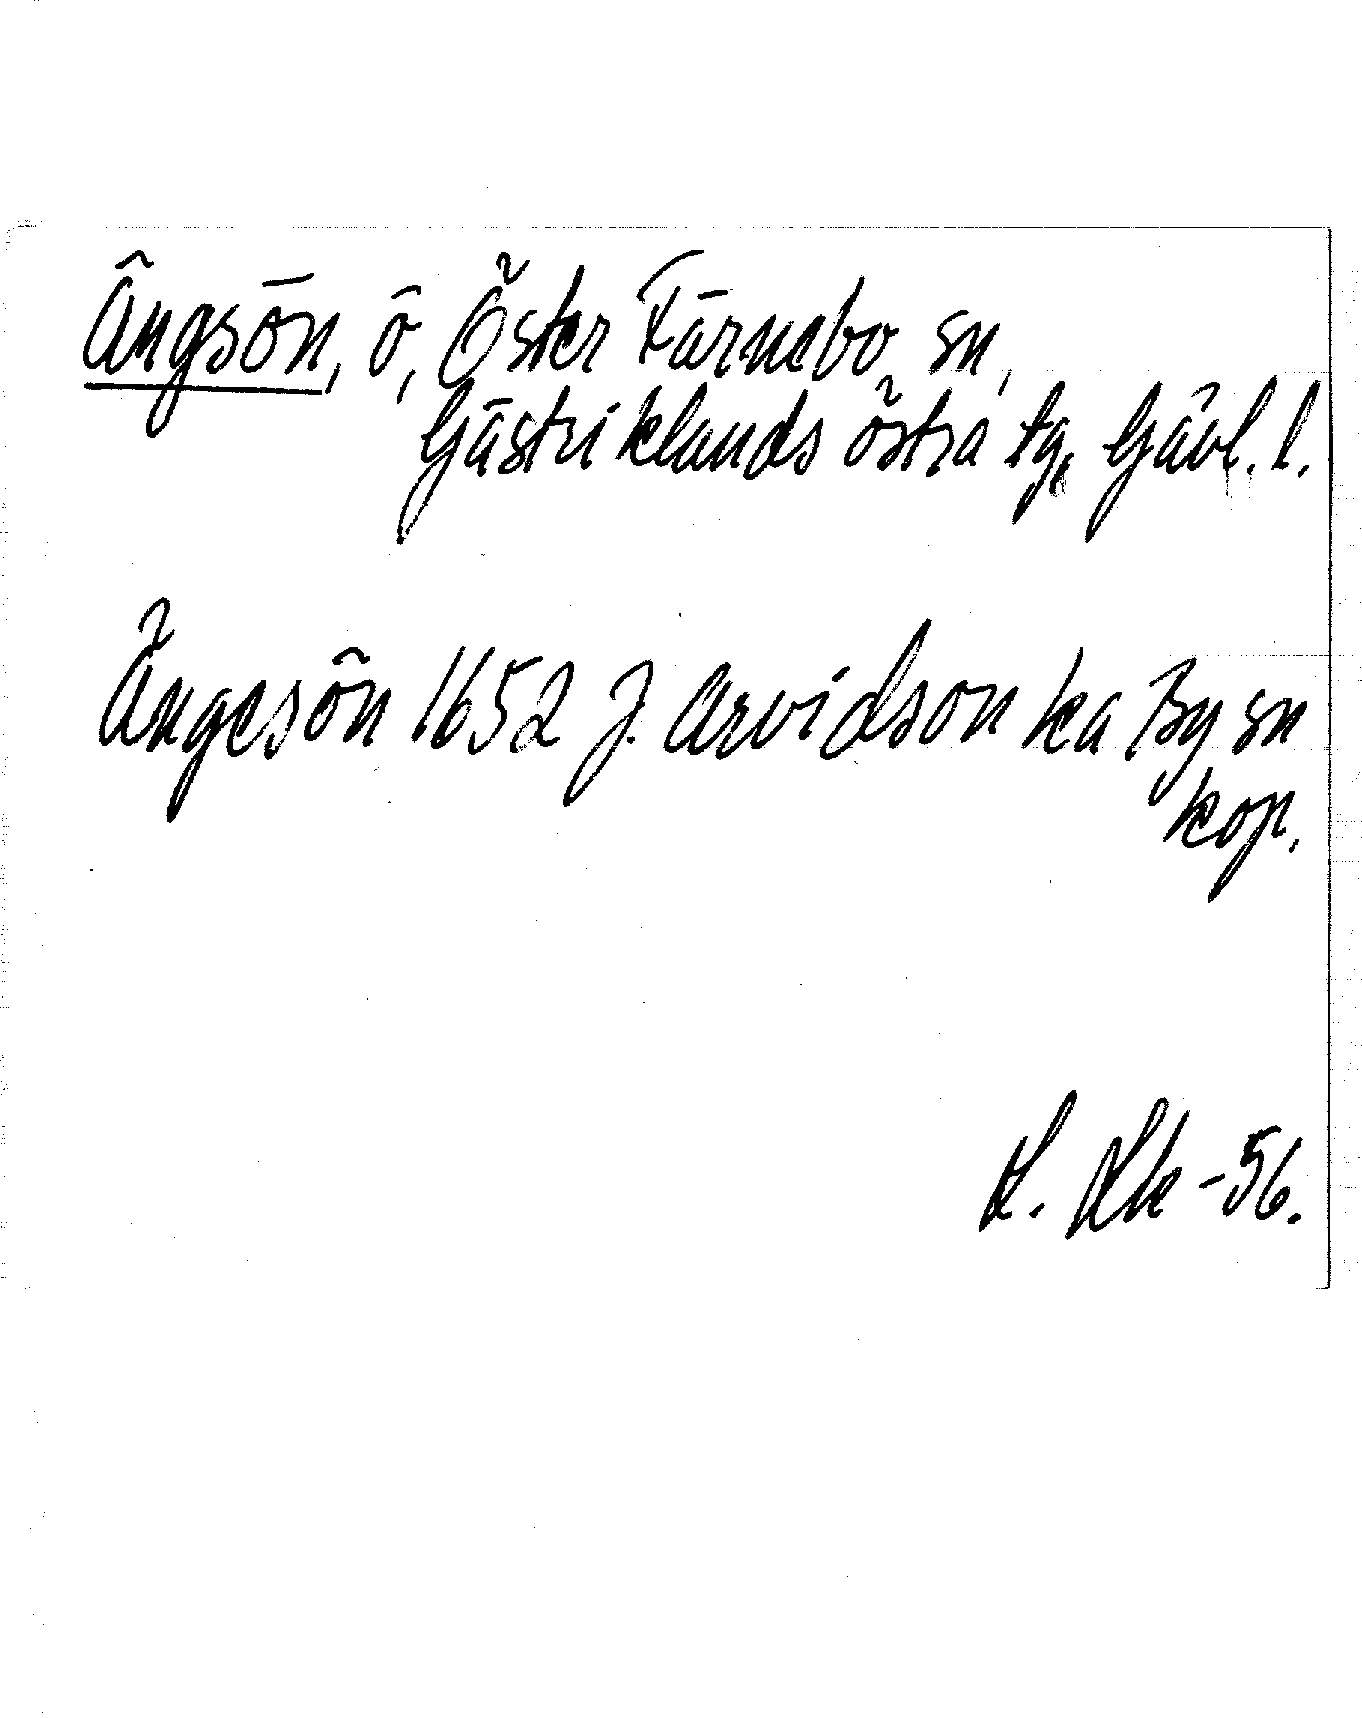 Ängsön, ö, Öster Färnebo sn,
Gästriklands östra tg, Gävl. l.
Ängesön 1652 J. Arvidson ka By sn
kop.
-56.